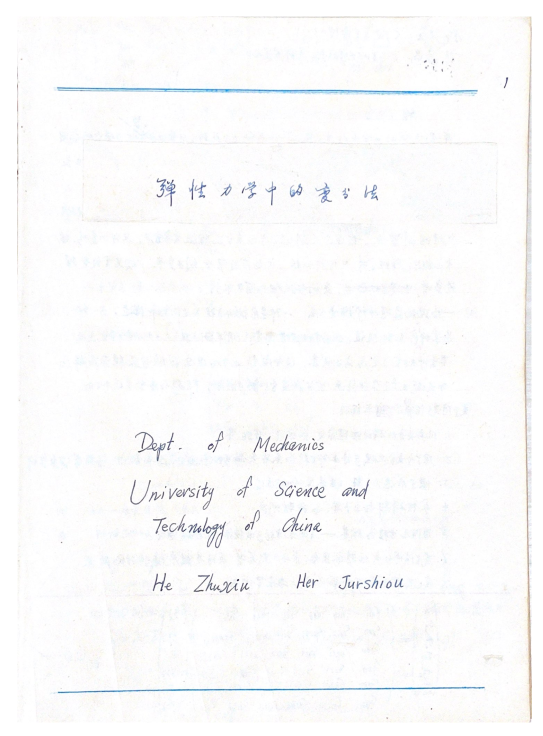 1
弹性力学中的变分法
Dept. of Mechanics
University of Science and
Technology of China
He Zhuxiu Her Jurshiou